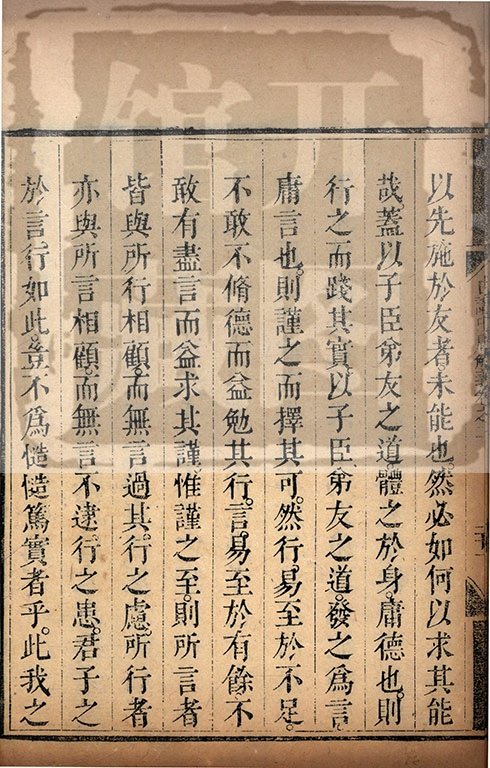 以先施於友者。未能也。然必如何以求其能
哉。蓋以子臣弟友之道。體之於身。庸德也。則
行之而踐其實。以子臣弟友之道。發之爲言。
庸言也。則謹之而擇其可。然行。易至於不足。
不敢不脩德而益勉其行。言。易至於有餘。不
敢有盡言而益求其謹。惟謹之至。則所言者
皆與所行相顧。而無言過其行之慮。所行者
亦與所言相顧。而無言不逮行之患。君子之
於言行如此。豈不爲慥慥篤實者乎。此我之